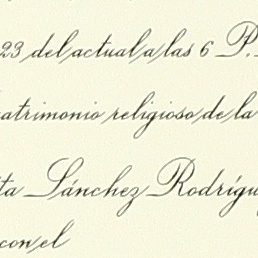 23 del actual a las 6 P.
atrimonio religioso de la
ta Sánchez Rodrígu
con el